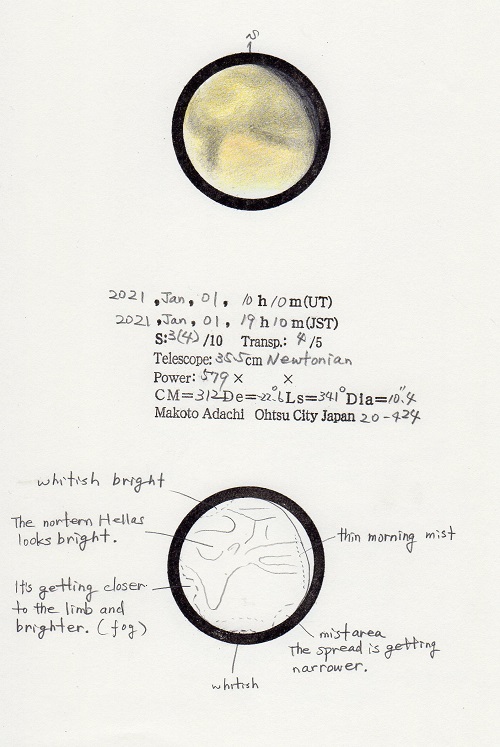 S
2021, Jan, 01, 10 h 10 m(UT)
2021, Jan, 01, 19 h 10 m(JST)
S:3(4)/10 Transp.: 4/5
Telescope: 35.5cm Newtonian
Power: 579 × ×
CM=312 De=-22.6° Ls=341° Dia=10".4
Makoto Adachi Ohtsu City Japan 20-424
whitish bright
The nortern Hellas
looks bright.
thin morning mist
It's getting closer
to the limb and
brighter. (fog)
mist area
The spread is getting
narrower.
whitish